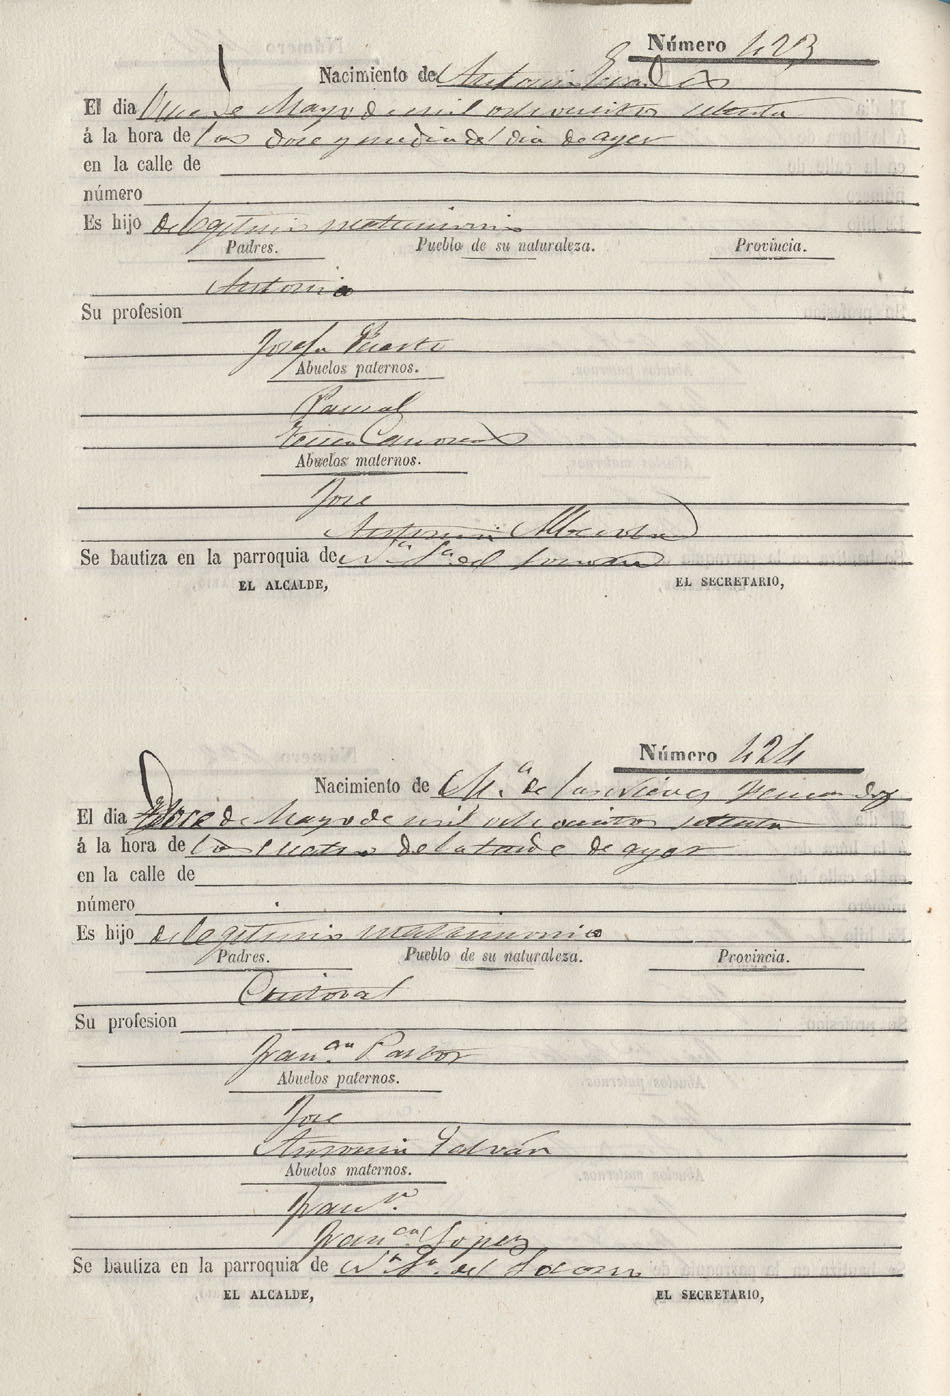 Número 423
Nacimiento de Antonio
El dia Once de Mayo de mil ochocientos setenta
á la hora de las doce y media del dia de ayer
en la calle de
número
Es hijo de legitimo matrimonio
Padres. Pueblo de su naturaleza. Provincia.
Antonio
Su profesion
Josefa Puerto
Abuelos paternos.
Pascual
Canovas
Abuelos maternos.
Jose
Antonia Albacete
Se bautiza en la parroquia de Nª Sª del Socorro
EL ALCALDE, EL SECRETARIO,
Número 424
Nacimiento de Mª de las Nieves Fernandez
El dia Doce de Mayo de mil ochocientos setenta
á la hora de las cuatro de la tarde de ayer
en la calle de
número
Es hijo de legitimo matrimonio
Padres. Pueblo de su naturaleza. Provincia.
Cristoval
Su profesion
Franca Pastor
Abuelos paternos.
Jose
Antonia Galván
Abuelos maternos.
Franco
Franca Lopez
Se bautiza en la parroquia de Nª Sª del Socorro
EL ALCALDE, EL SECRETARIO,